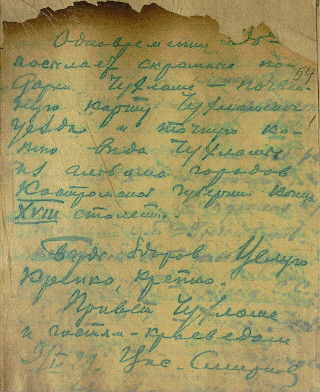 Одновременно
посылаем скромный по-
дарок Чухломе —
ную карту Чухломского
уезда и точную ко-
пию вида Чухломы
из альбома городов
Костромской губернии конца
XVIII столетия.
Будь здоров Целую
Крепко, крепко.
Привет Чухломе
и гостям-краеведам
29. Смирнов
54